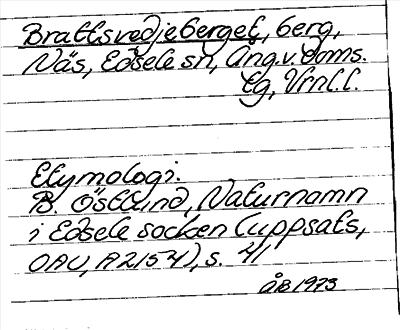 Brattsvedjeberget, berg,
Näs, Edsele sn, Ång. v. doms.
tg, Vrnl. l.
Etymologi.
B. Östlund, Naturnamn
i Edsele socken (uppsats,
OAU, A2154), s. 41
ÅB 1973